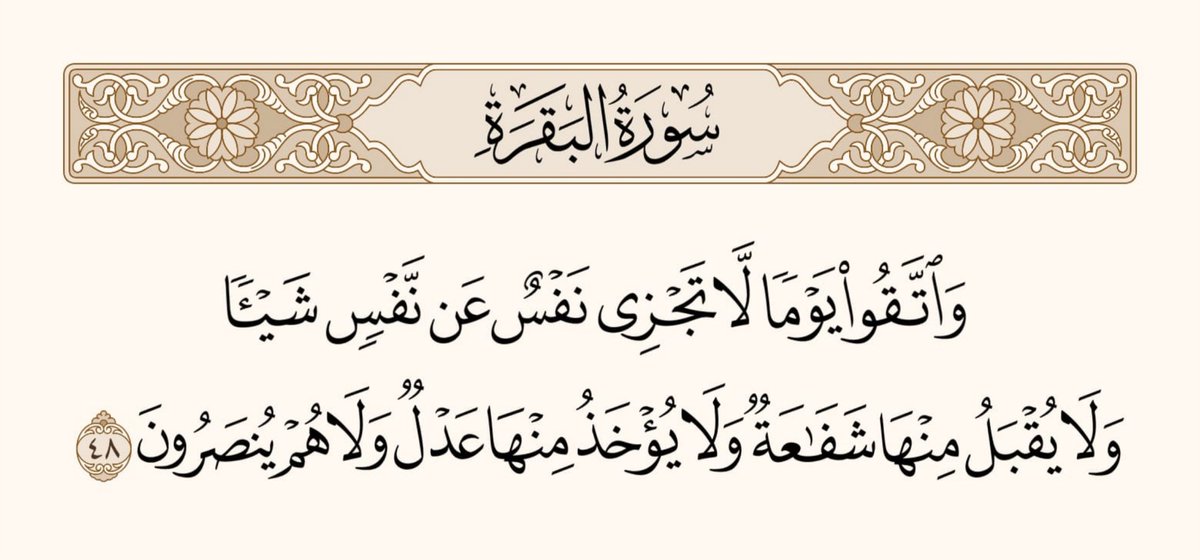 سُورَةُ البَقَرَةِ
وَٱتَّقُوا۟ يَوۡمٗا لَّا تَجۡزِي نَفۡسٌ عَن نَّفۡسٖ شَيۡـٔٗا
وَلَا يُقۡبَلُ مِنۡهَا شَفَٰعَةٞ وَلَا يُؤۡخَذُ مِنۡهَا عَدۡلٞ وَلَا هُمۡ يُنصَرُونَ ٤٨